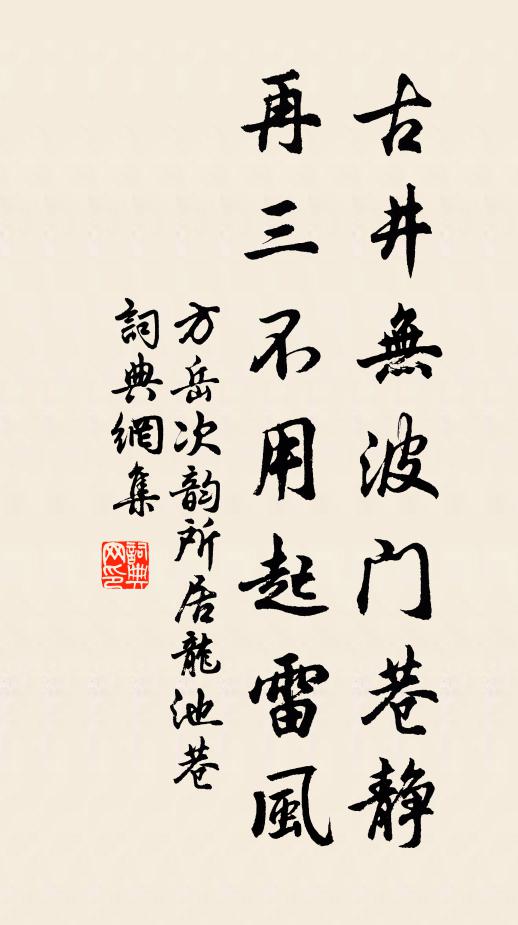 古井無波门巷静
再三不用起雷風
方岳次韵所居龍池巷
詞典網集
詞典网印